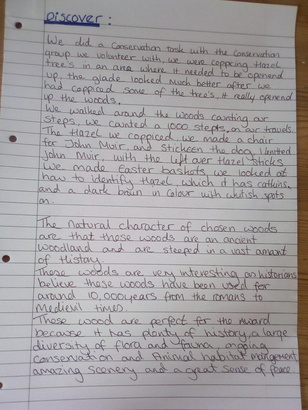 Discover:
We did a conservation task with the conservation
group we volunteer with, we were coppicing Hazel
tree's in an area where it needed to be openend
up, the glade looked much better after we
had coppiced some of the tree's, it really openend
up the woods.
We walked around the woods counting our
steps, we counted a 1000 steps, on our travels.
The Hazel we coppiced we made a chair
for John Muir, and the dog, I knitted
John Muir, with the left over Hazel sticks
We made Easter baskets, we looked at
how to identify Hazel, which it has catkins,
and a dark brown in colour with whitish spots
on.
The natural character of chosen woods
are that these woods are an ancient
woodland and are steeped in a vast amant
of history.
These woods are very interesting as historians
believe these woods have been used for
around 10,000 years from the romans to
Medievil times.
These wood are perfect for the award
because it has plenty of history, a large
diversity of flora and fauna, ongoing
conservation and animal habitat mangement,
amazing scenery and a great sense of peace